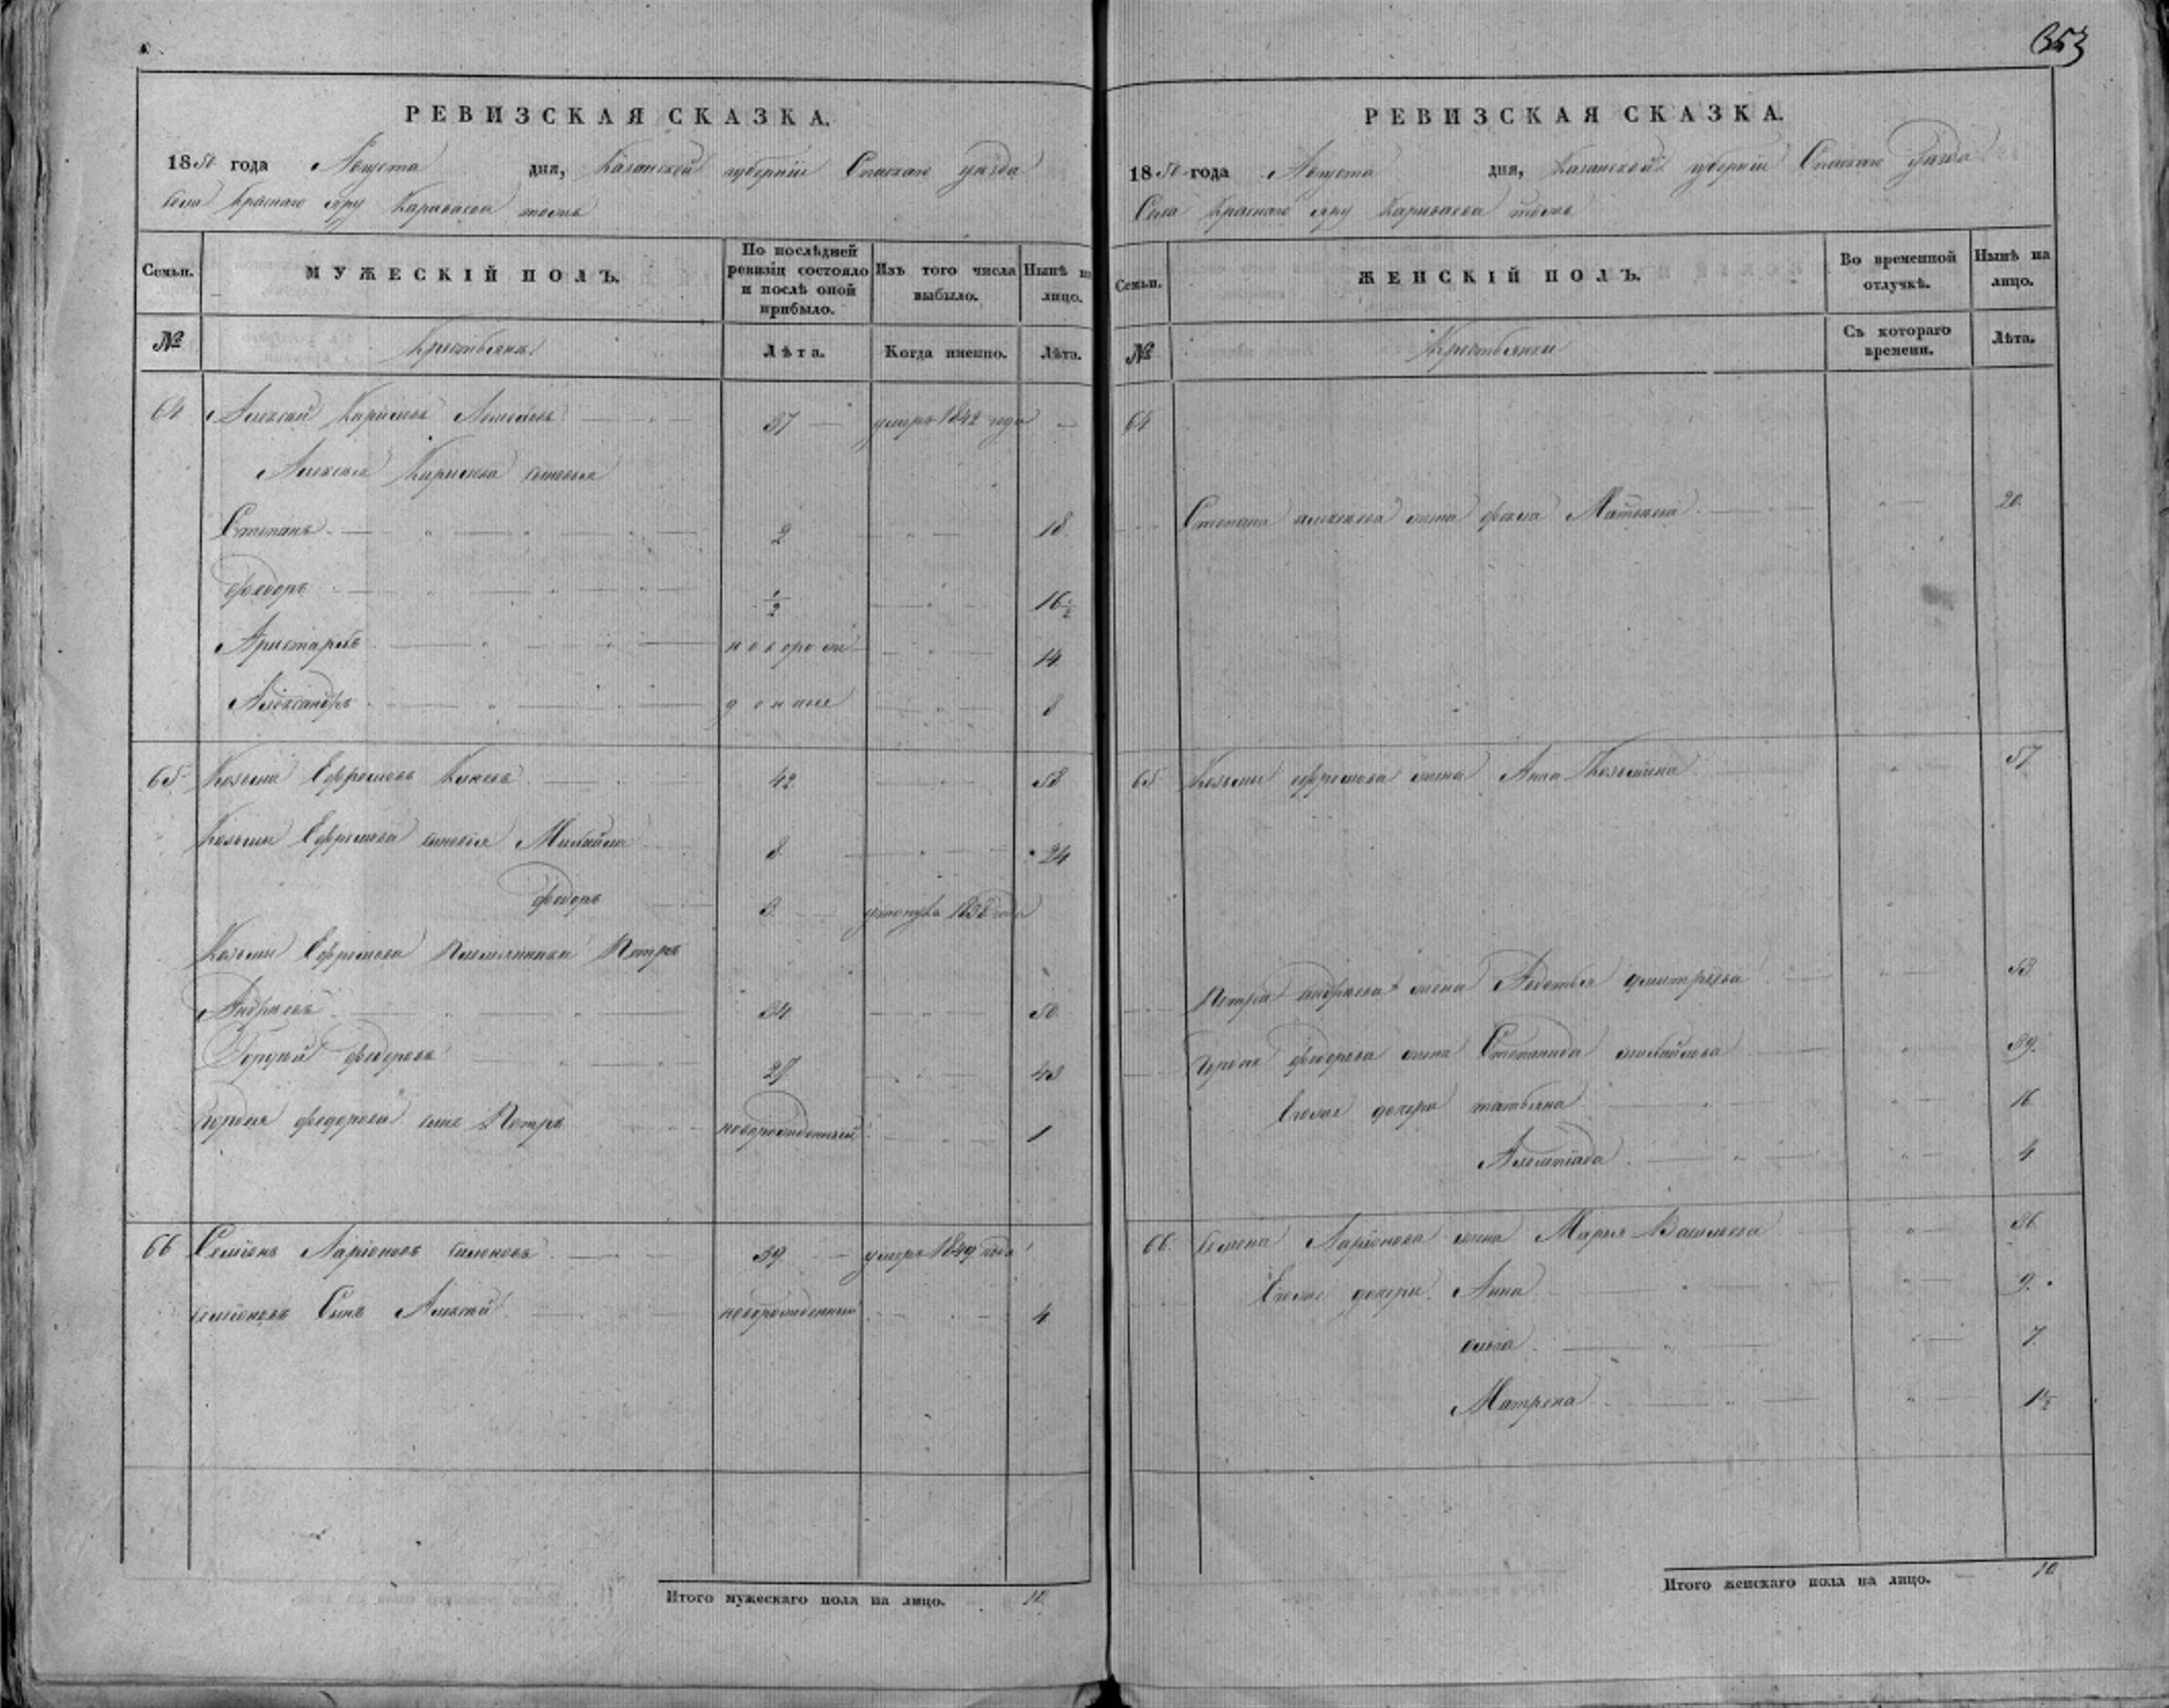 353
РЕВИЗСКАЯ СКАЗКА.
1850 года Августа дня, Казанской губернии Спаскаго уезда
Села Краснаго яру Караваева тожъ
Семьи.
МУЖЕСКІЙ ПОЛЪ.
По послѣдней ревизіи состояло и послѣ оной прибыло.
Изъ того числа выбыло.
Нынѣ на лицо.
№
Крестьяне
Лѣта.
Когда именно.
Лѣта.
64 Алексей Кирилов 37 умеръ 1842 года
Алексея Кирилова сыновья
Степанъ 2 18
Федоръ 1/2 16 1/2
Аристархъ новорож 14
Александръ денные 8
65 Козьма Ефремовъ 42 58
Козьмы Ефремова сыновья Михайла 8 24
Федоръ 3 утонулъ 1838 года
Козьмы Ефремова племянники Петръ
Андреевъ 34 50
Гордей Федоровъ 27 43
Гордея Федорова сынъ Петръ новорожденный 1
66 Семіонъ Ларіоновъ 39 умеръ 1849 года
Семіоновъ Сынъ Алексей новорожденный 4
Итого мужескаго пола на лицо. 10
РЕВИЗСКАЯ СКАЗКА.
1850 года Августа дня, Казанской губерніи Спаскаго Уезда
Села Краснаго яру Караваева тожъ
Семьи.
ЖЕНСКІЙ ПОЛЪ.
Во временной отлучкѣ.
Нынѣ на лицо.
№
Крестьянки
Съ котораго времени.
Лѣта.
64
Степана алексеева жена Матвеева 20
65 Козьмы ефремова жена Анна Козьмина 57
Петра андреева жена Авдотья дмитреева 53
гордея федорова жена Степанида михайлова 39
Ево же дочери татьяна 16
4
66 Семена Ларіонова жена Марья Васильева 36
Ево же дочери Анна 9
7
Матрена 1 1/2
Итого женскаго пола на лицо. 10